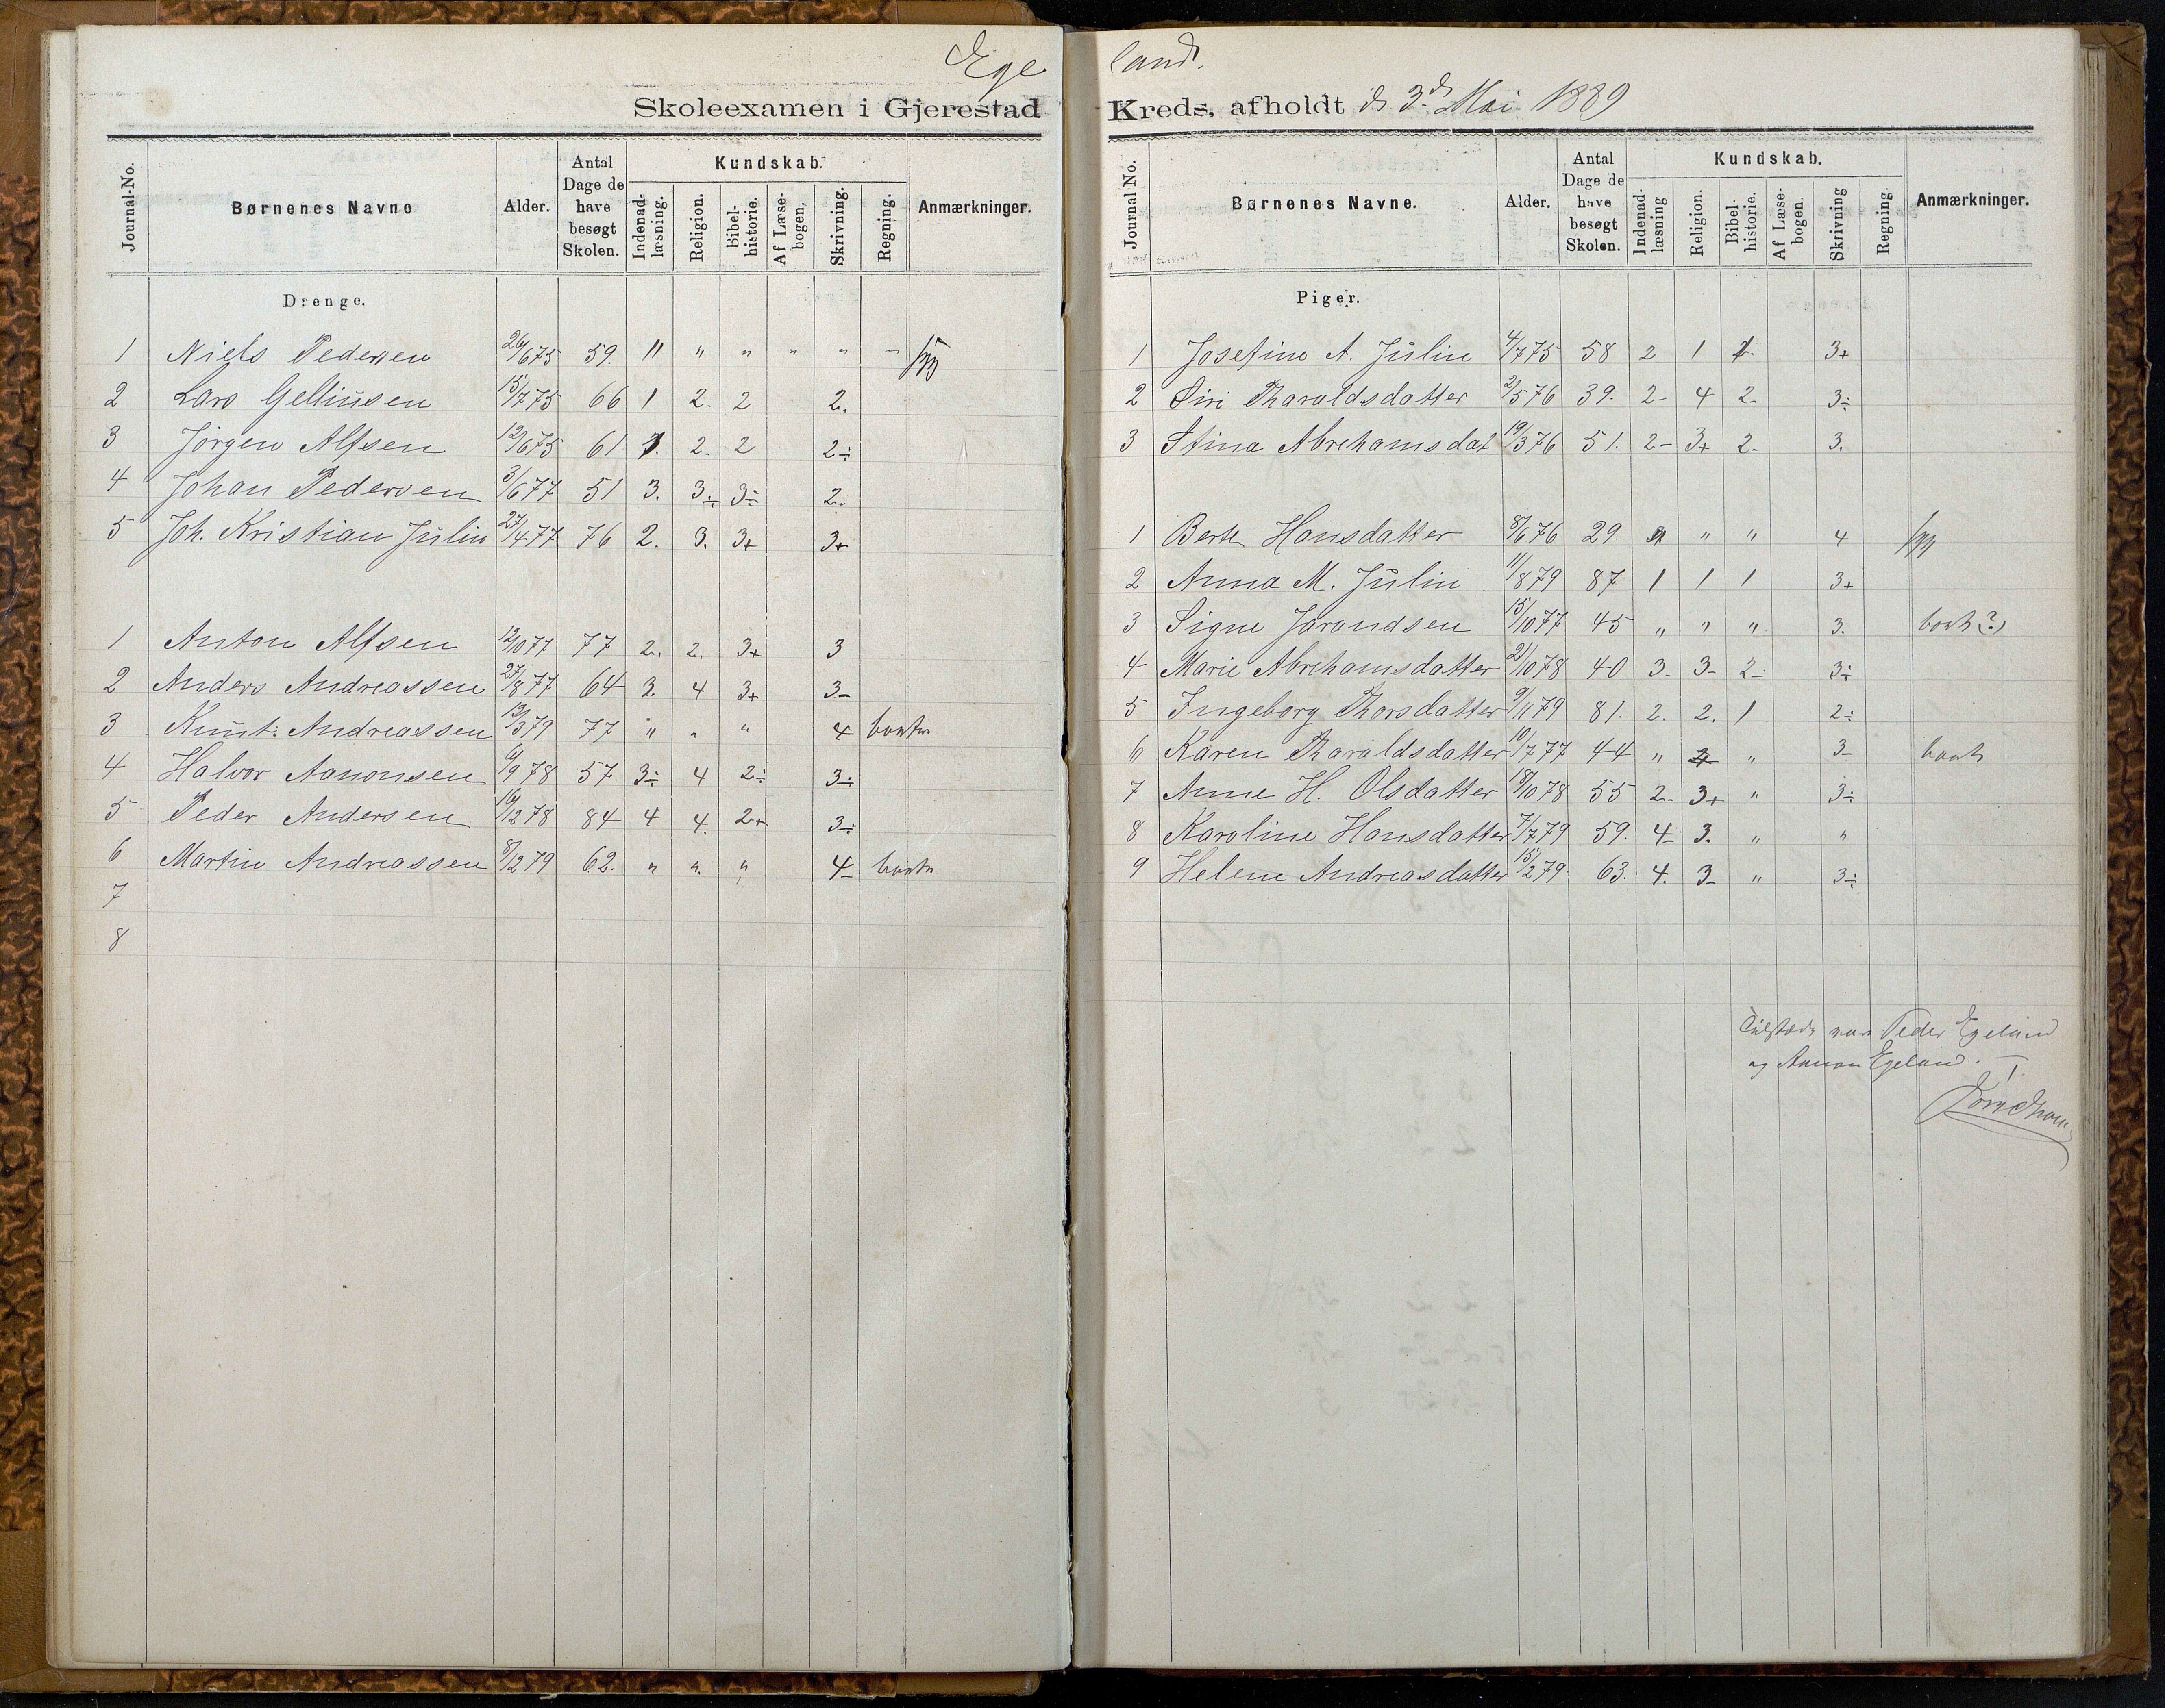 Egeland.
Skoleexamen i Gjerestad Kreds, afholdt d. 3d Mai 1889
Journal-No. Børnenes Navne Alder. Antal Dage de have besøgt Skolen. Kundskab. Indenad-læsning. Religion. Bibel-historie. Af Læse-bogen. Skrivning. Regning. Anmærkninger.
Drenge.
1 Niels Pedersen 26/6 75 59. " " " " " "
2 Lars Gelliusen 15/7 75 66 1 2. 2 2.
3 Jørgen Alfsen 12/6 75 61 1. 2. 2 2÷
4 Johan Pedersen 3/6 77 51 3. 3÷ 3÷ 2.
5 Joh. Kristian Julin 27/4 77 76 2. 3. 3+ 3+
1 Anton Alfsen 12/10 77 77 2. 2. 3+ 3
2 Anders Andreassen 27/8 77 64 3. 4 3+ 3-
3 Knut Andreassen 13/3 79 77 " " " 4 borte
4 Halvor Aanonsen 6/9 78 57 3÷ 4 2÷ 3÷
5 Peder Andersen 16/12 78 84 4 4. 2+ 3÷
6 Martin Andreassen 8/12 79 62. " " " 4- borte
7
8
Journal No. Børnenes Navne. Alder. Antal Dage de have besøgt Skolen. Kundskab. Indenad-læsning Religion. Bibel-historie. Af Læse-bogen. Skrivning Regning. Anmærkninger.
Piger.
1 Josefine A. Julin 4/7 75 58 2 1 1. 3+
2 Siri Tharaldsdatter 2/5 76 39. 2- 4 2- 3÷
3 Stina Abrehamsdat 19/3 76 51. 2- 3+ 2- 3.
1 Berte Hansdatter 8/6 76 29. " " " 4
2 Anna M. Julin 11/8 79 87 1 1 1 3+
3 Signe Jarandsen 15/10 77 45 " " " 3. bort(?)
4 Marie Abrehamsdatter 21/10 78 40 3- 3- 2- 3÷
5 Ingeborg Thorsdatter 9/11 79 81. 2. 2. 1 2÷
6 Karen Tharaldsdatter 10/7 77 44 " " 3- bort
7 Anne H. Olsdatter 18/10 78 55 2- 3+ " 3÷
8 Karoline Hansdatter 7/7 79 59. 4- 3. " "
9 Helene Andreasdatter 15/2 79 63. 4. 3- " 3÷
Tilstede var Peder Egeland
og Aanon Egeland.